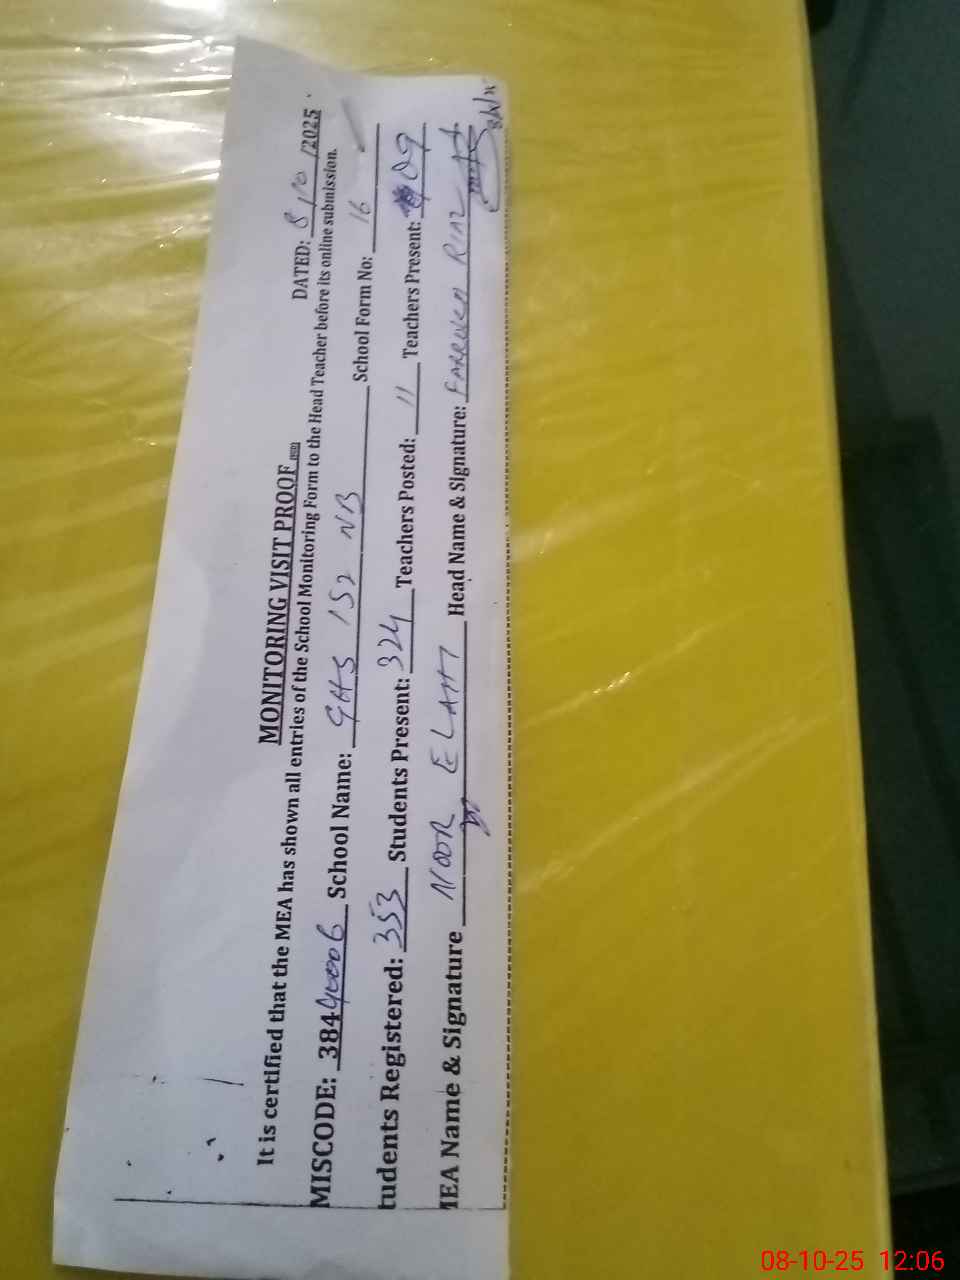 MONITORING VISIT PROOF
DATED: 8/10/2025
It is certified that the MEA has shown all entries of the School Monitoring Form to the Head Teacher before its online submission.
MISCODE: 38440006 School Name: GHS 152 NB School Form No: 16
tudents Registered: 353 Students Present: 324 Teachers Posted: 11 Teachers Present: 09
MEA Name & Signature NOOR ELAHI Head Name & Signature: RIAZ
08-10-25 12:06